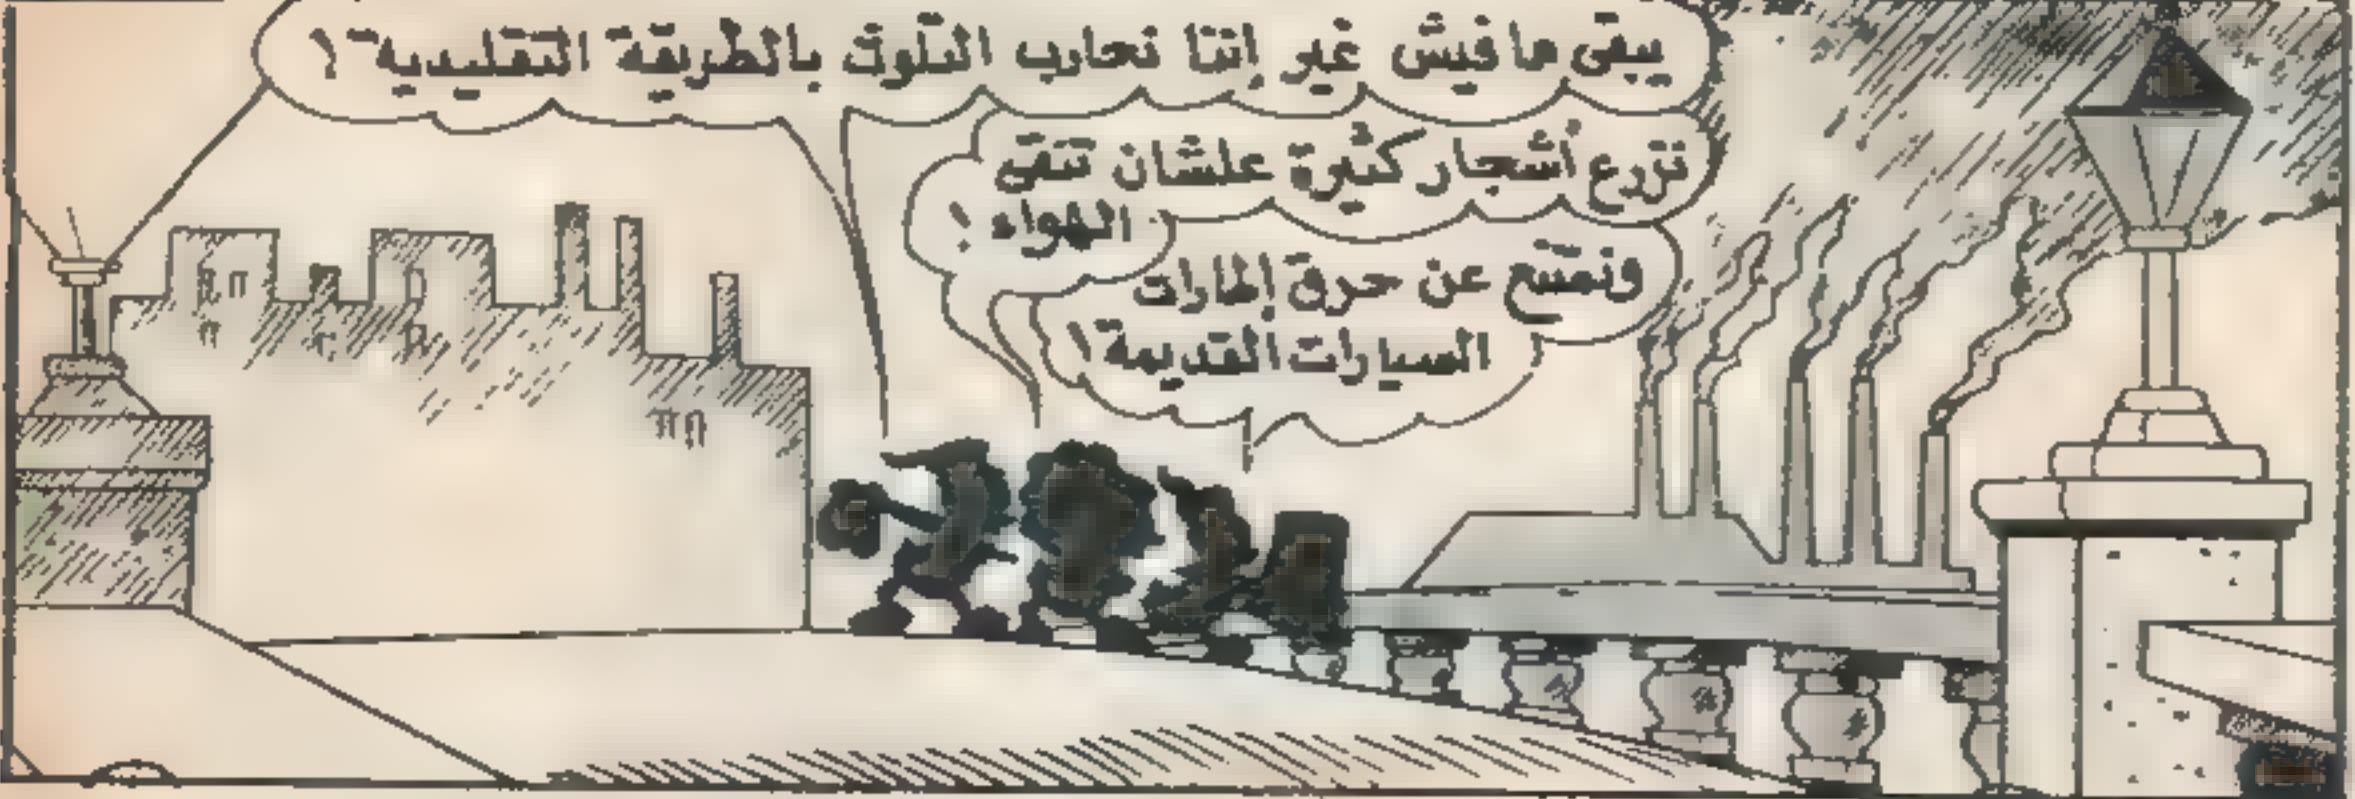 يبقى مافيش غير إننا نحارب التلوث بالطريقة التقليدية ؟
نزرع أشجار كثيرة علشان تنقى
الهواء !
ونمتنع عن حرق إطارات
السيارات القديمة !